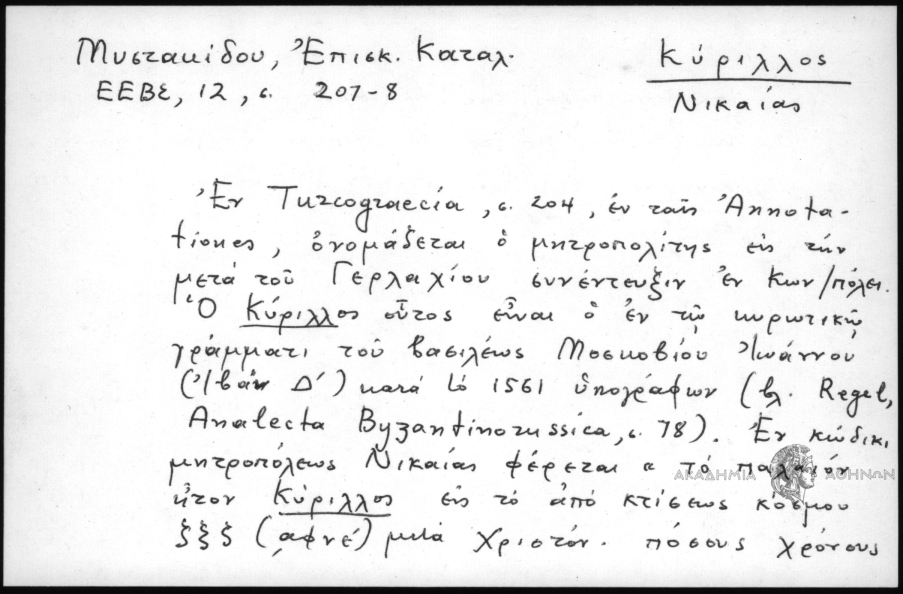 Μυστακίδου, Ἐπισκ. Καταλ.
ΕΕΒΣ, 12, σ. 207-8
Κύριλλος
Νικαίας
Ἐν Turcograecia, σ. 204, ἐν ταῖς Annota-
tiones, ὀνομάζεται ὁ μητροπολίτης εἰς τήν
μετά τοῦ Γερλαχίου συνέντευξιν ἐν Κων/πόλει.
Ὁ Κύριλλος οὗτος εἶναι ὁ ἐν τῷ κυρωτικῷ
γράμματι τοῦ βασιλέως Μοσκοβίου Ἰωάννου
(Ἰβάν Δ΄) κατά τό 1561 ὑπογράφων (βλ. Regel,
Analecta Byzantinorussica, σ. 78). Ἐν κώδικι
μητροπόλεως Νικαίας φέρεται « τό παλαιόν
ἦτον Κύριλλος εἰς τό ἀπό κτίσεως κόσμου
ξξξ (αφνέ) μετά Χριστόν. πόσους χρόνους
ΑΚΑΔΗΜΙΑ ΑΘΗΝΩΝ